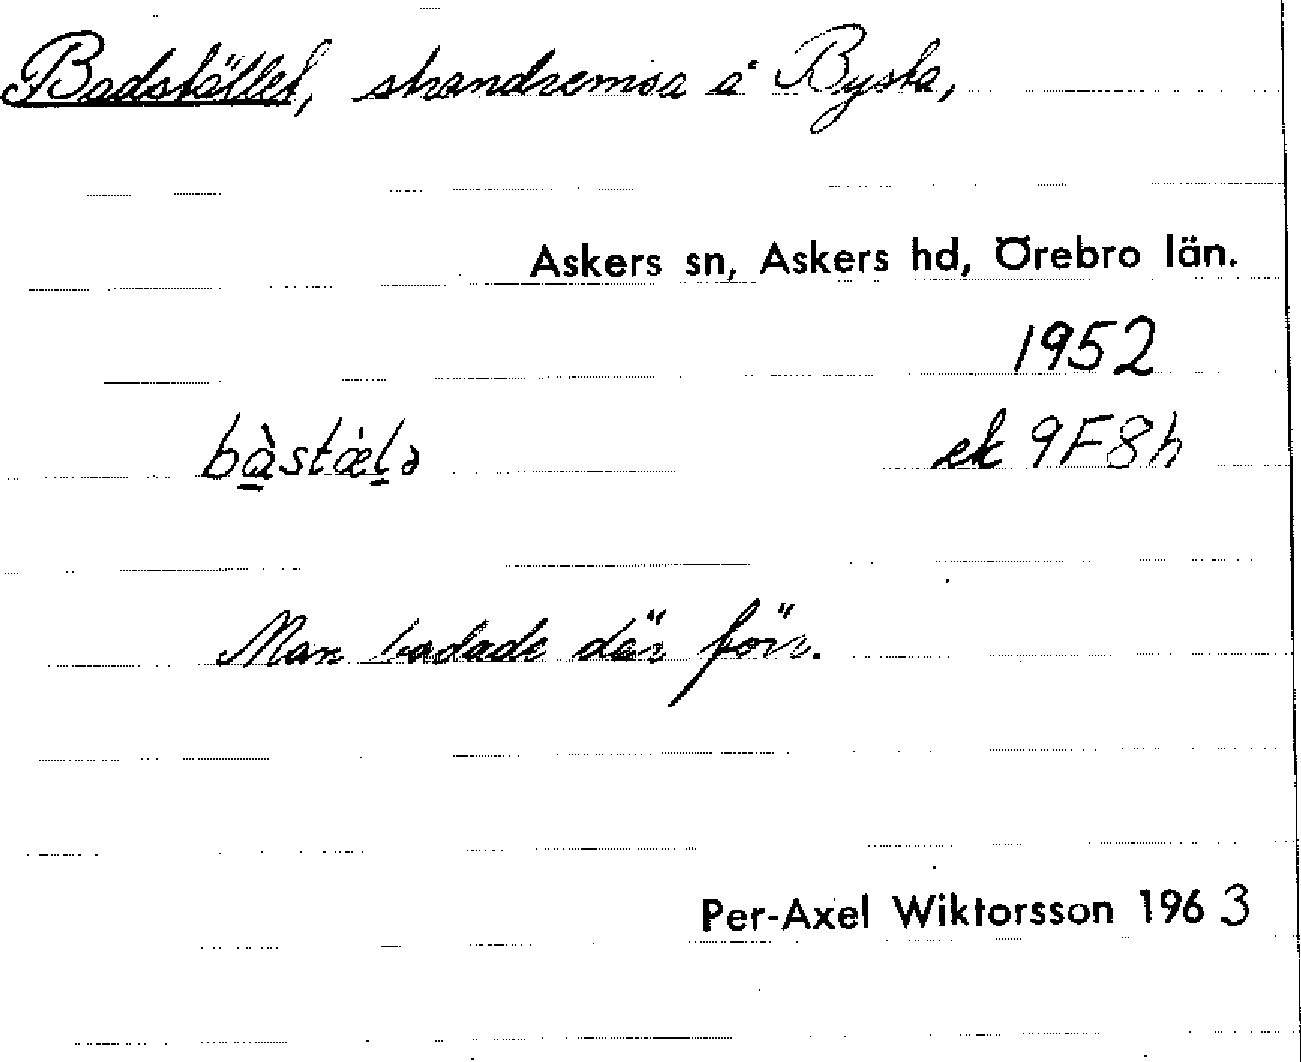 Badstället, strandremsa å Bysta,
Askers sn, Askers hd, Örebro län.
1952
bà̱stæ̀ḻə ek 9F8h
Man badade där förr.
Per-Axel Wiktorsson 1963